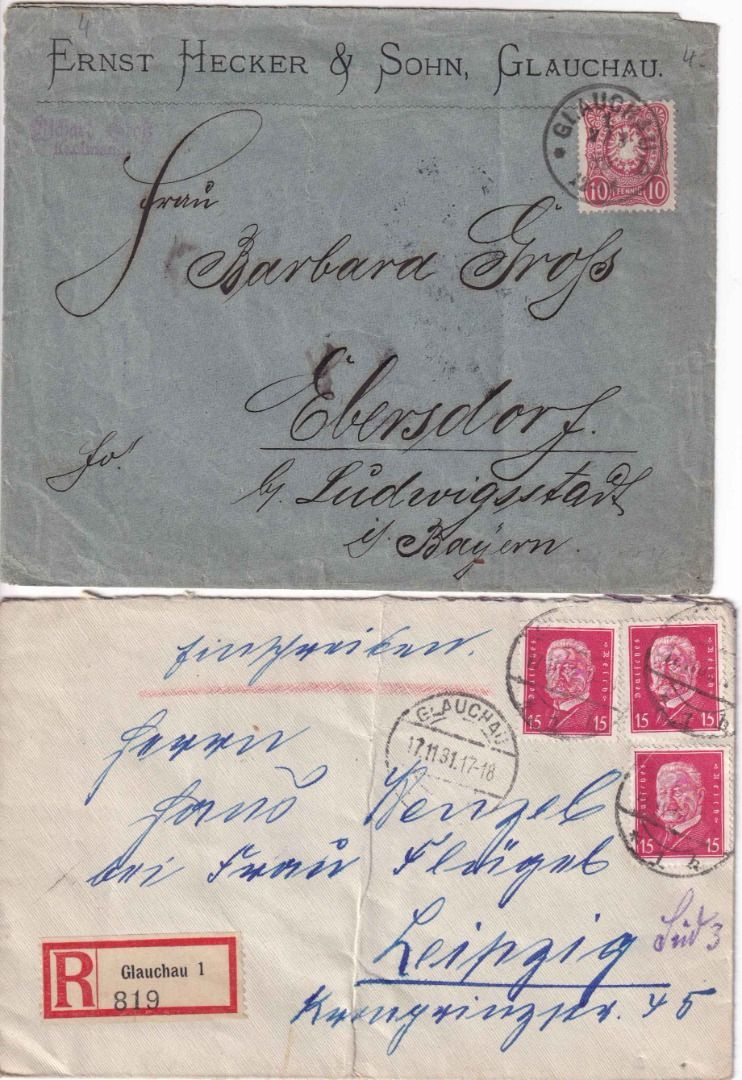 4
4.-
ERNST HECKER & SOHN, GLAUCHAU.
GLAUCHAU
10 PFENNIG 10
Frau
Barbara Groß
Ebersdorf.
fr.
b/ Ludwigsstadt
i/ Bayern.
Einschreiben.
Deutsches Reich
15 15
Deutsches Reich
15 15
Deutsches Reich
15 15
GLAUCHAU
17.11.31.17-18
Herrn
Hans Wenzel
bei Frau Flügel
Leipzig Süd 3
Kronprinzstr. 45
R Glauchau 1
819